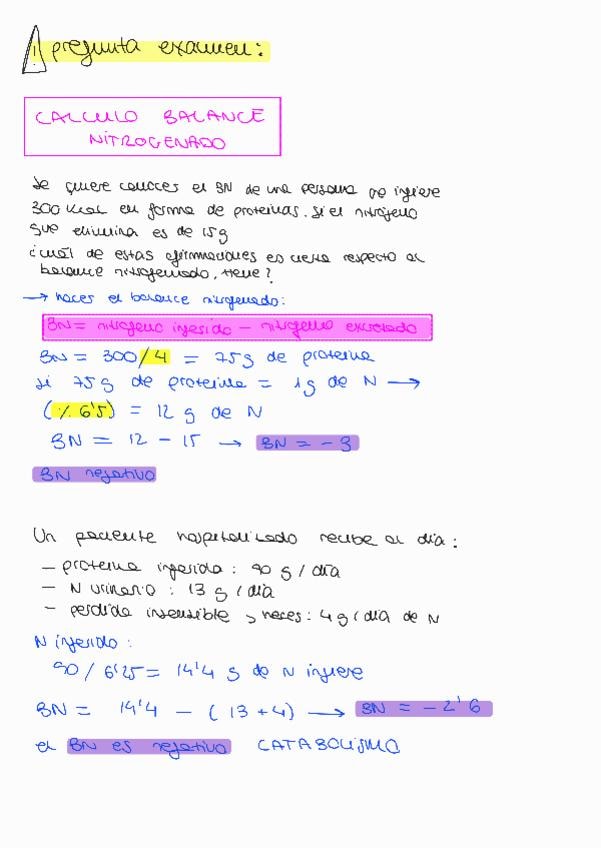 ! pregunta examen:
CALCULO BALANCE
NITROGENADO
Se quiere conocer el BN de una persona que ingiere
300 Kcal en forma de proteinas. Si el nitrógeno
que elimina es de 15g
¿cuál de estas afirmaciones es cierta respecto al
balance nitrogenado, tiene?
→ haces el balance nitrogenado:
BN = nitrogeno ingerido - nitrogeno excretado
BN = 300 / 4 = 75g de proteina
si 75 g de proteina = 1g de N →
(% 6'5) = 12 g de N
BN = 12 - 15 → BN = - 3
BN negativo
Un paciente hospitalizado recibe al dia:
- proteina ingerida: 90 g / dia
- N urinario: 13 g / dia
- perdida insensible y heces: 4g / dia de N
N ingerido:
90 / 6'25 = 14'4 g de N ingiere
BN = 14'4 - (13 + 4) → BN = - 2'6
el BN es negativo CATABOLISMO